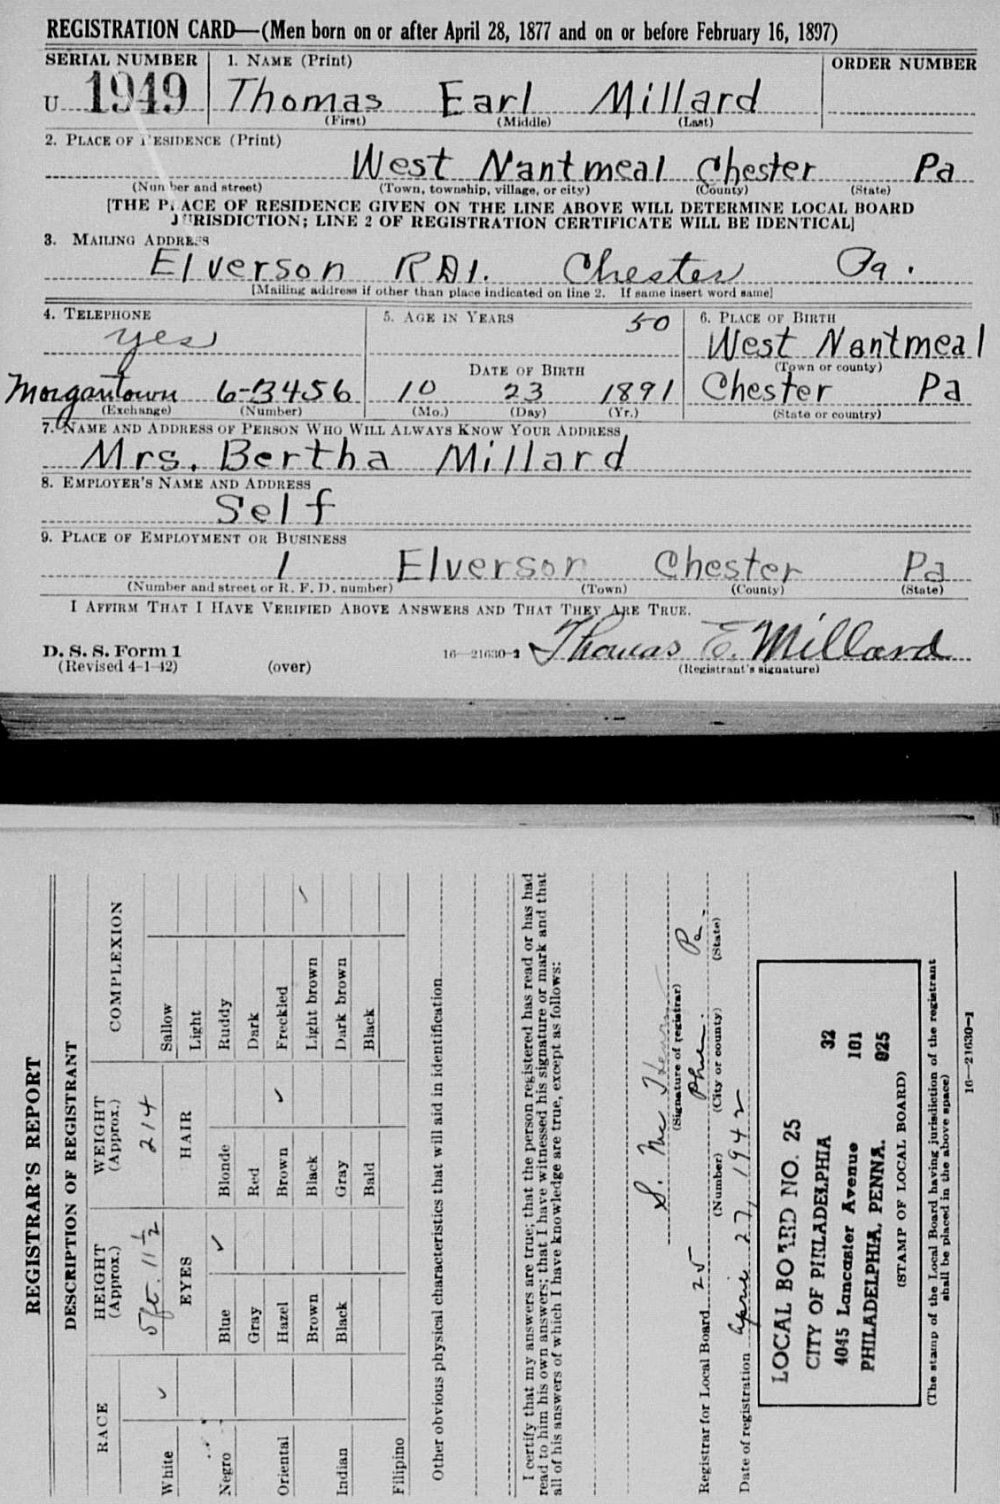 REGISTRATION CARD—(Men born on or after April 28, 1877 and on or before February 16, 1897)
SERIAL NUMBER 1. NAME (Print) ORDER NUMBER
U 1949 Thomas Earl Millard
(First) (Middle) (Last)
2. PLACE OF RESIDENCE (Print)
West Nantmeal Chester Pa
(Number and street) (Town, township, village, or city) (County) (State)
[THE PLACE OF RESIDENCE GIVEN ON THE LINE ABOVE WILL DETERMINE LOCAL BOARD
JURISDICTION; LINE 2 OF REGISTRATION CERTIFICATE WILL BE IDENTICAL]
3. MAILING ADDRESS
Elverson RD1. Chester Pa.
[Mailing address if other than place indicated on line 2. If same insert word same]
4. TELEPHONE 5. AGE IN YEARS 6. PLACE OF BIRTH
yes 50 West Nantmeal
(Town or county)
DATE OF BIRTH
Morgantown 6-3456 10 23 1891 Chester Pa
(Exchange) (Number) (Mo.) (Day) (Yr.) (State or country)
7. NAME AND ADDRESS OF PERSON WHO WILL ALWAYS KNOW YOUR ADDRESS
Mrs. Bertha Millard
8. EMPLOYER'S NAME AND ADDRESS
Self
9. PLACE OF EMPLOYMENT OR BUSINESS
1 Elverson Chester Pa
(Number and street or R. F. D. number) (Town) (County) (State)
I AFFIRM THAT I HAVE VERIFIED ABOVE ANSWERS AND THAT THEY ARE TRUE.
D. S. S. Form 1
(Revised 4-1-42) (over) 16—21630-1 Thomas E. Millard
(Registrant's signature)
REGISTRAR'S REPORT
DESCRIPTION OF REGISTRANT
RACE HEIGHT (Approx.) WEIGHT (Approx.) COMPLEXION
5 ft. 11 1/2 214
EYES HAIR
White ✓ Sallow
Light
Negro Blue ✓ Blonde Ruddy
Gray Red Dark
Oriental Hazel Brown ✓ Freckled
Brown Black Light brown ✓
Indian Black Gray Dark brown
Bald Black
Filipino
Other obvious physical characteristics that will aid in identification
I certify that my answers are true; that the person registered has read or has had
read to him his own answers; that I have witnessed his signature or mark and that
all of his answers of which I have knowledge are true, except as follows:
S. Mc
(Signature of registrar)
Registrar for Local Board 25 Phila. Pa.
(Number) (City or county) (State)
Date of registration April 27, 1942
LOCAL BOARD NO. 25
CITY OF PHILADELPHIA 32
4045 Lancaster Avenue 101
PHILADELPHIA, PENNA. 025
(STAMP OF LOCAL BOARD)
(The stamp of the Local Board having jurisdiction of the registrant
shall be placed in the above space)
16—21630-1